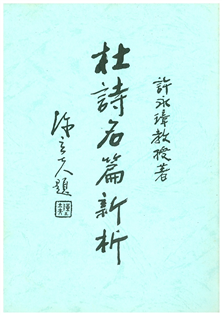 許永璋教授著
杜詩名篇新析
陳立夫題